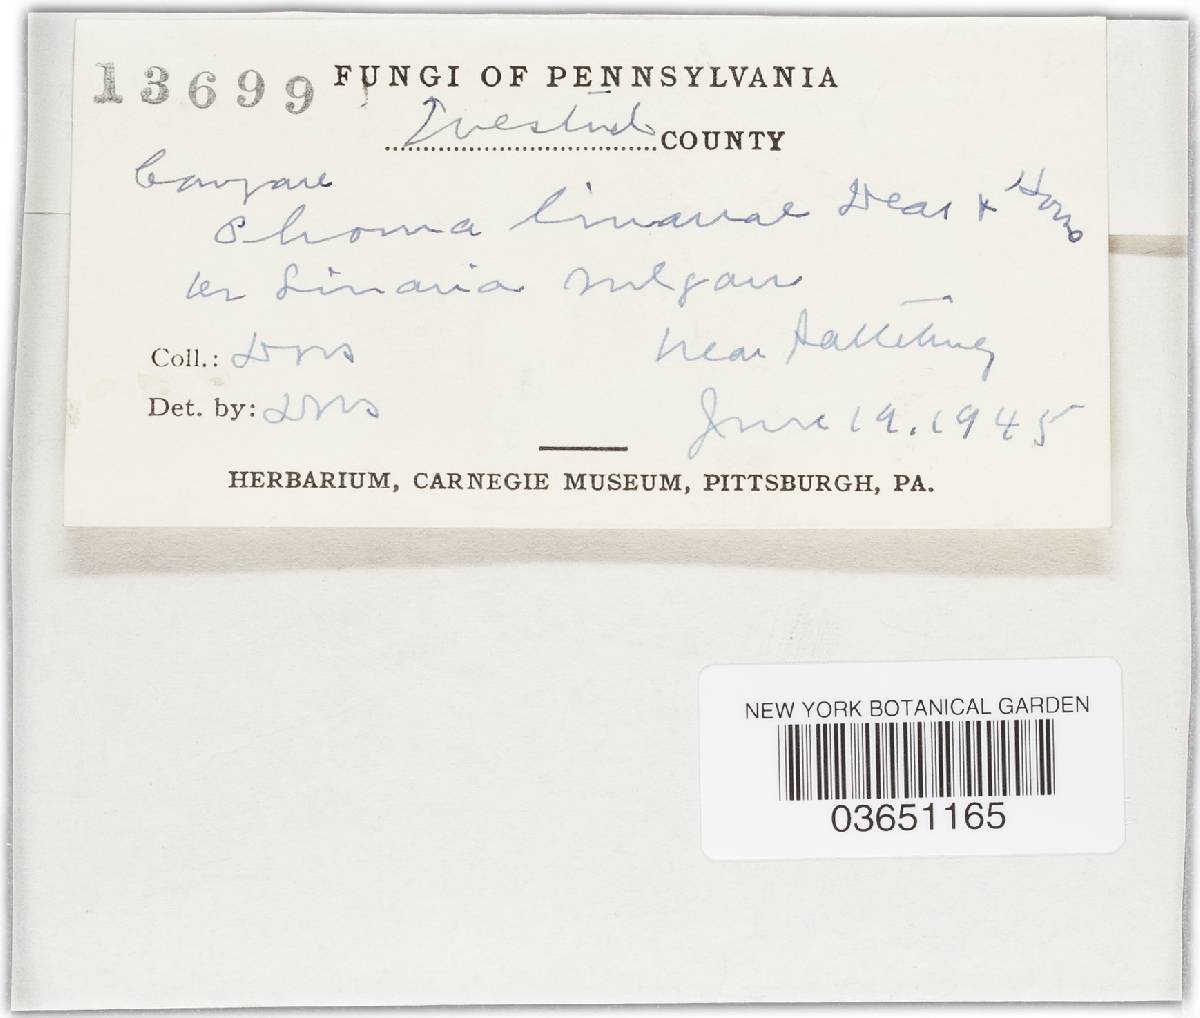 13699 FUNGI OF PENNSYLVANIA
COUNTY
Compare
Phoma linariae Dear & House
on Linaria vulgaris
Coll.: near
Det. by: June 19. 1945
HERBARIUM, CARNEGIE MUSEUM, PITTSBURGH, PA.
NEW YORK BOTANICAL GARDEN
03651165